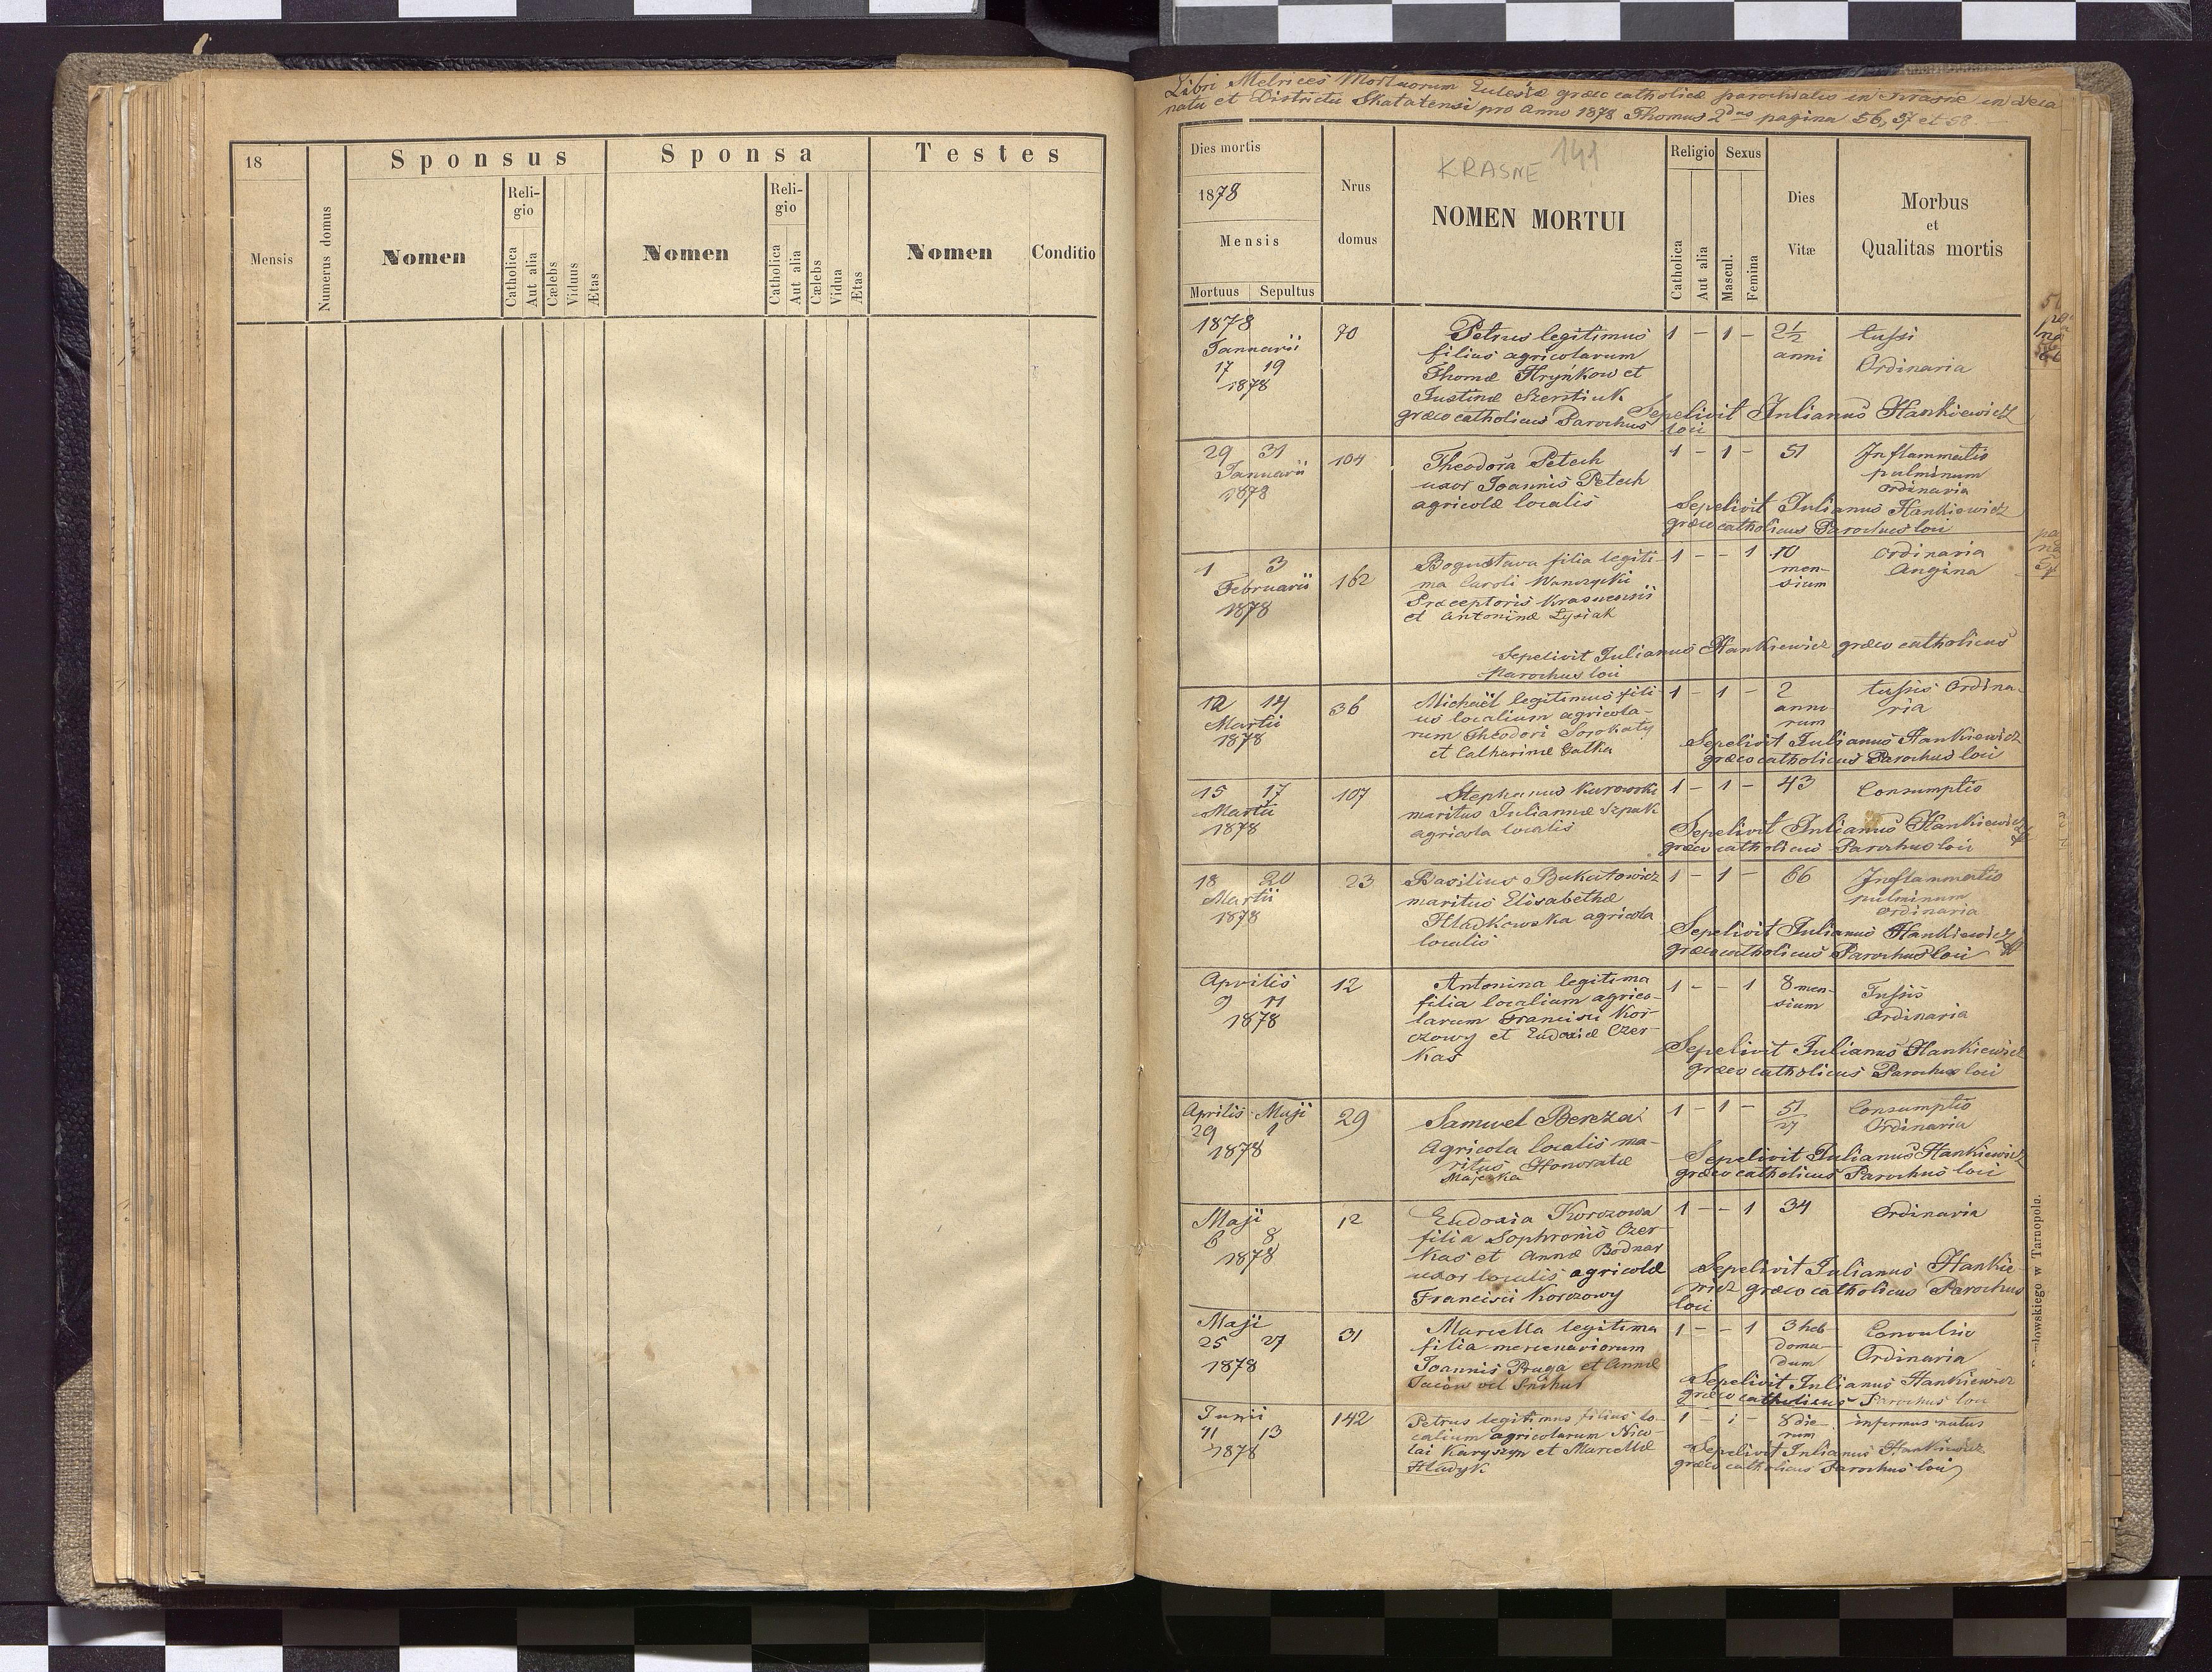 18
Sponsus
Sponsa
Testes
Mensis
Numerus domus
Nomen
Religio
Catholica
Aut alia
Cælebs
Viduus
Ætas
Nomen
Religio
Catholica
Aut alia
Cælebs
Vidua
Ætas
Nomen
Conditio
Libri Metrices Mortuorum Eclesiæ græco catholicæ parochialis in Krasne in Deca
natu et Districtu Skalatensi pro Anno 1878 Thomus 2dus pagina 56, 57 et 58.
Dies mortis
1878
Mensis
Mortuus
Sepultus
Nrus
domus
KRASNE 141
NOMEN MORTUI
Religio
Sexus
Catholica
Aut alia
Mascul.
Femina
Dies
Vitæ
Morbus
et
Qualitas mortis
1878
Januarii
17 19
1878
70
Petrus legitimus
filius agricolarum
Thomæ Hryńkow et
Justinæ Szerstiuk
1 - 1 -
2 1/2
anni
tussi
Ordinaria
Sepelivit Julianus Hankiewicz
græco catholicus Parochus loci
29 31
Januarii
1878
104
Theodora Petech
uxor Joannis Petech
agricolæ localis
1 - 1 -
51
Inflammatio
pulminum
ordinaria
Sepelivit Julianus Hankiewicz
græco catholicus Parochus loci
1 3
Februarii
1878
162
Bogustava filia legiti-
ma Caroli
Præceptoris Krasnensis
et Antoninæ Łysiak
1 - - 1
10
men-
sium
Ordinaria
Angina
Sepelivit Julianus Hankiewicz græco catholicus
Parochus loci
12 14
Martii
1878
36
Michael legitimus fili-
us localium agricola-
rum Theodori Sorokaty
et Catharinæ Gatka
1 - 1 -
2
anno-
rum
tussis Ordina-
ria
Sepelivit Julianus Hankiewicz
græco catholicus Parochus loci
15 17
Martii
1878
107
Stephanus Kurowski
maritus Juliannæ Szpak
agricola localis
1 - 1 -
43
Consumptio
Sepelivit Julianus Hankiewicz
græco catholicus Parochus loci
18 20
Martii
1878
23
Basilius Bukatowicz
maritus Elisabethæ
Hladkowska agricola
localis
1 - 1 -
66
Inflammatio
pulminum
ordinaria
Sepelivit Julianus Hankiewicz
græco catholicus Parochus loci
Aprilis
9 11
1878
12
Antonina legitima
filia localium agrico-
larum Francisci Kor-
czowy et Eudoxiæ Czer-
kas
1 - - 1
8 men-
sium
Tussis
Ordinaria
Sepelivit Julianus Hankiewicz
græco catholicus Parochus loci
Aprilis Maji
29 1
1878
29
Samuel Bereza
Agricola localis ma-
ritus Honoratæ
Majewka
1 - 1 -
51
27
Consumptio
Ordinaria
Sepelivit Julianus Hankiewicz
græco catholicus Parochus loci
Maji
6 8
1878
12
Eudoxia Korczowa
filia Sophronii Czer-
kas et Annæ Bodnar
uxor localis agricolæ
Francisci Korczowy
1 - - 1
34
Ordinaria
Sepelivit Julianus Hankie-
wicz græco catholicus Parochus
loci
Maji
25 27
1878
31
Marcella legitima
filia mercenariorum
Joannis Pruga et Annæ
Jaciow vel Snihur
1 - - 1
3 heb-
doma-
dum
Convulsio
Ordinaria
Sepelivit Julianus Hankiewicz
græco catholicus Parochus loci
Junii
11 13
1878
142
Petrus legitimus filius lo-
calium agricolarum Nico-
lai Karyszyn et Marcellæ
Hladyk
1 - 1 -
8 die-
rum
infirmus natus
Sepelivit Julianus Hankiewicz
græco catholicus Parochus loci
łowskiego w Tarnopolu.